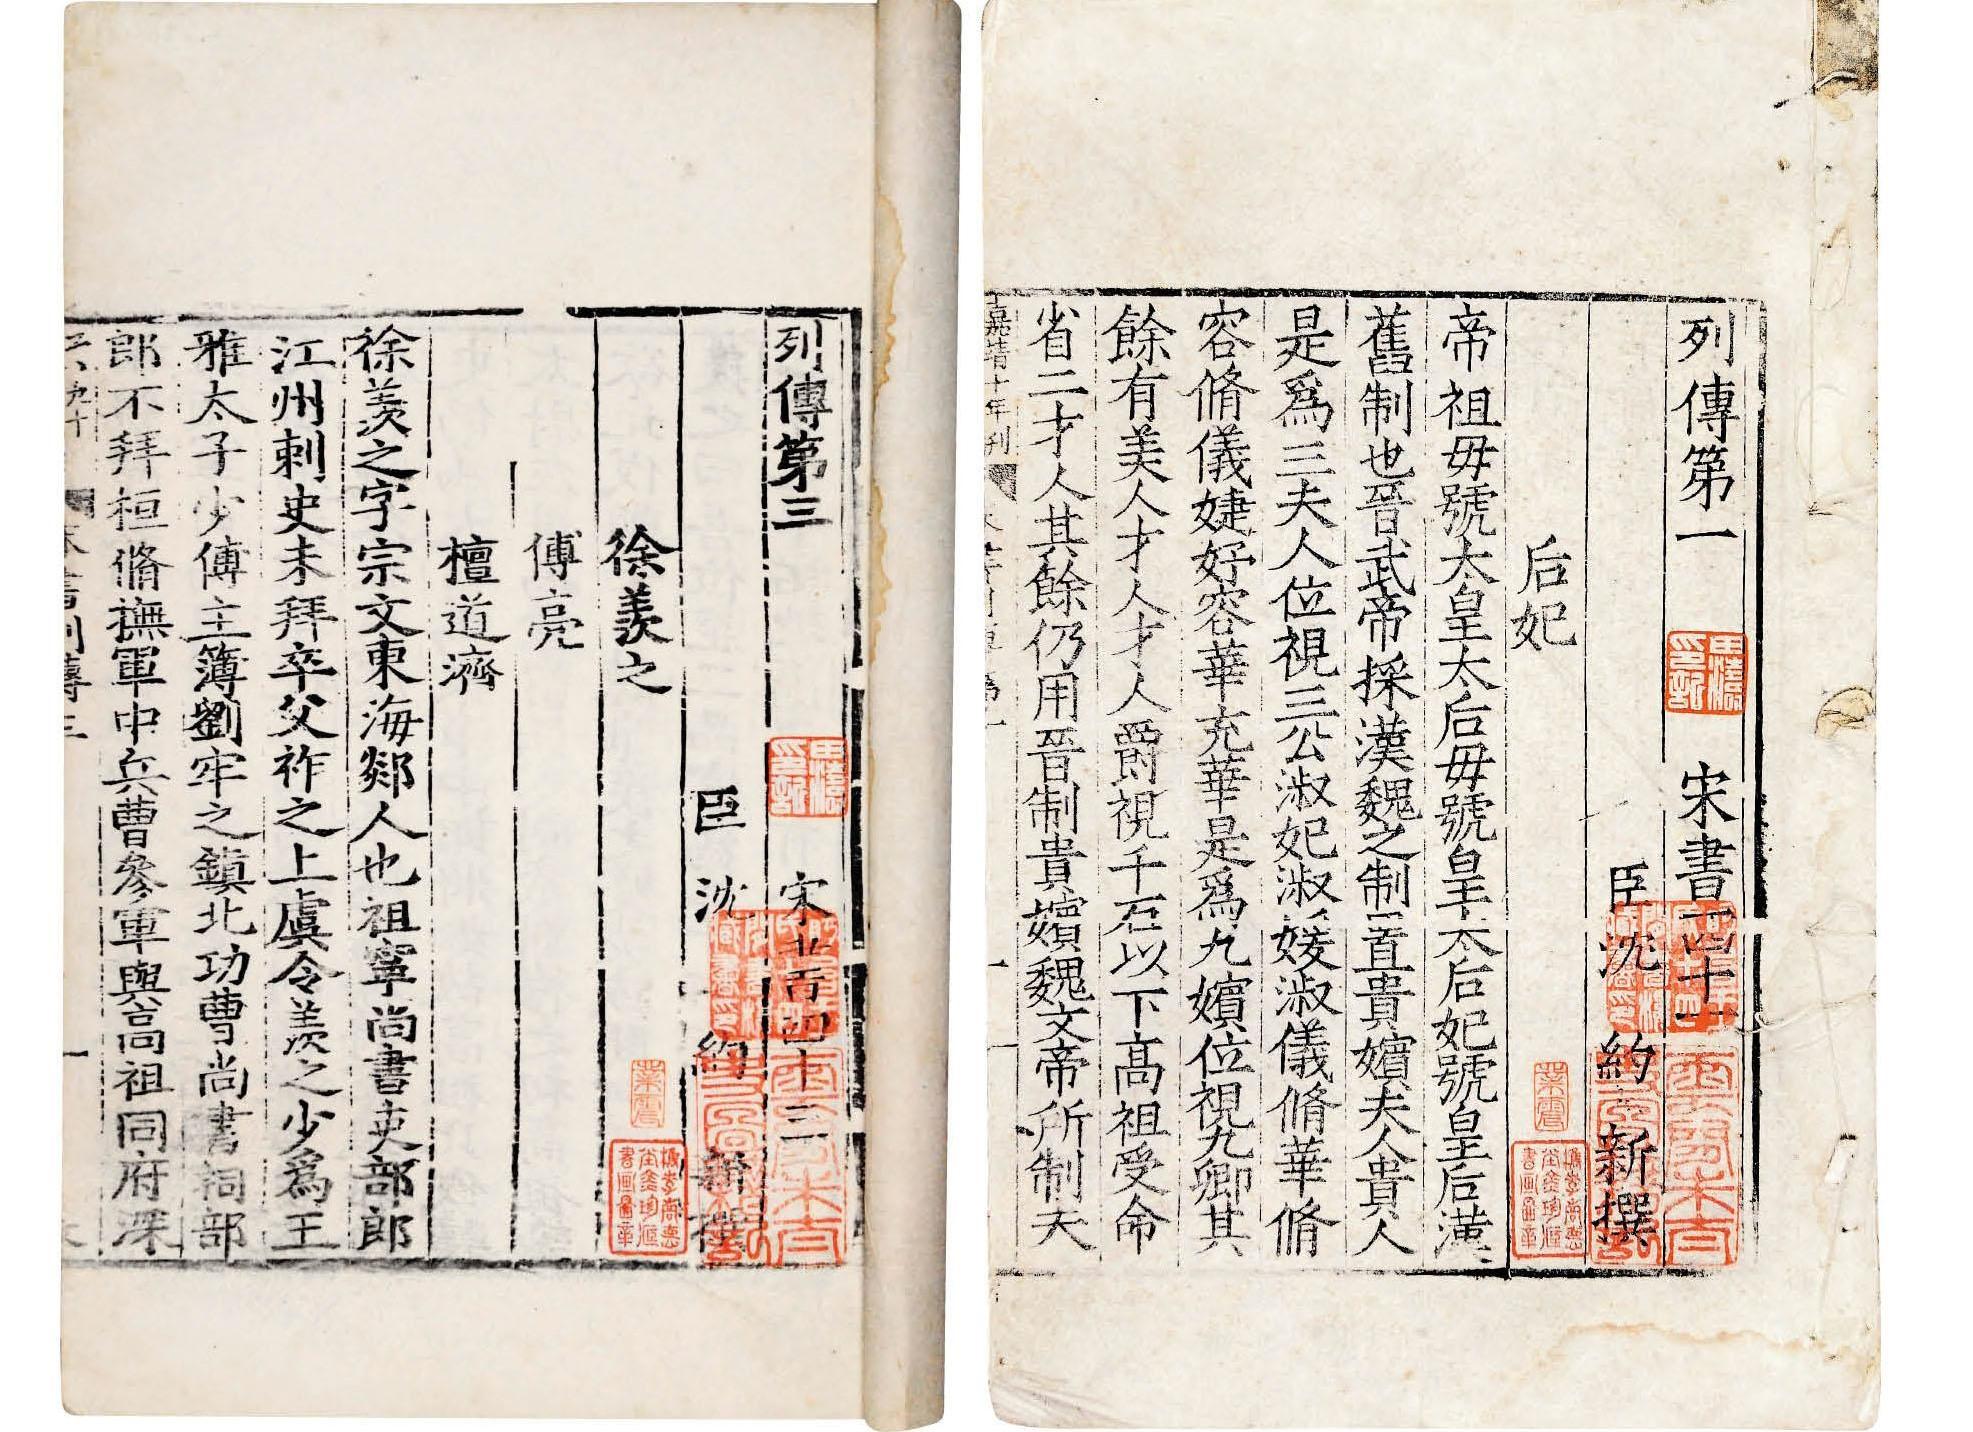 列傳第一　宋書四十一
臣沈約新撰
后妃
帝祖毋號太皇太后毋號皇太后妃號皇后漢
舊制也晉武帝採漢魏之制置貴嬪夫人貴人
是爲三夫人位視三公淑妃淑媛淑儀脩華脩
容脩儀婕妤容華充華是爲九嬪位視九卿其
餘有美人才人才人爵視千石以下高祖受命
省二才人其餘仍用晉制貴嬪魏文帝所制天
嘉靖十年刊
列傳第三　宋書四十三
臣沈約新撰
徐羨之
傅亮
檀道濟
徐羨之字宗文東海郯人也祖寧尚書吏部郎
江州刺史未拜卒父祚之上虞令羨之少爲王
雅太子少傅主簿劉牢之鎮北功曹尚書祠部
郎不拜桓脩撫軍中兵曹參軍與高祖同府深
書列傳三